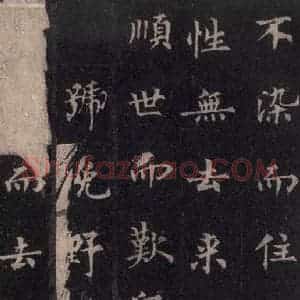 不染而住
性無去来
順世而歎
號悦野
而去
shufazidao.COM